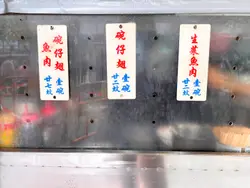 碗仔翅
魚肉
壹碗
廿七蚊
碗仔翅
壹碗
廿二蚊
生菜魚肉
壹碗
廿二蚊